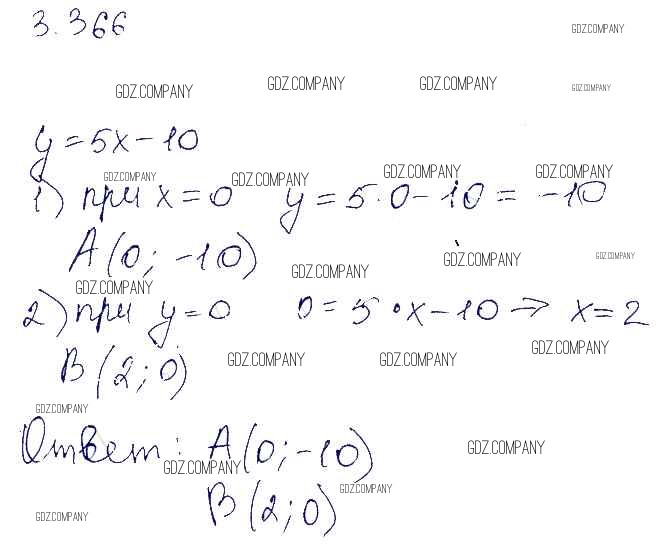 3.366
GDZ.COMPANY
GDZ.COMPANY GDZ.COMPANY GDZ.COMPANY GDZ.COMPANY
y = 5x - 10
GDZ.COMPANY GDZ.COMPANY GDZ.COMPANY GDZ.COMPANY
1) при x = 0 y = 5 · 0 - 10 = -10
A(0; -10)
GDZ.COMPANY GDZ.COMPANY GDZ.COMPANY GDZ.COMPANY
2) при y = 0 0 = 5 · x - 10 → x = 2
B(2; 0)
GDZ.COMPANY GDZ.COMPANY GDZ.COMPANY
GDZ.COMPANY
Ответ: A(0; -10)
GDZ.COMPANY GDZ.COMPANY
B(2; 0)
GDZ.COMPANY GDZ.COMPANY